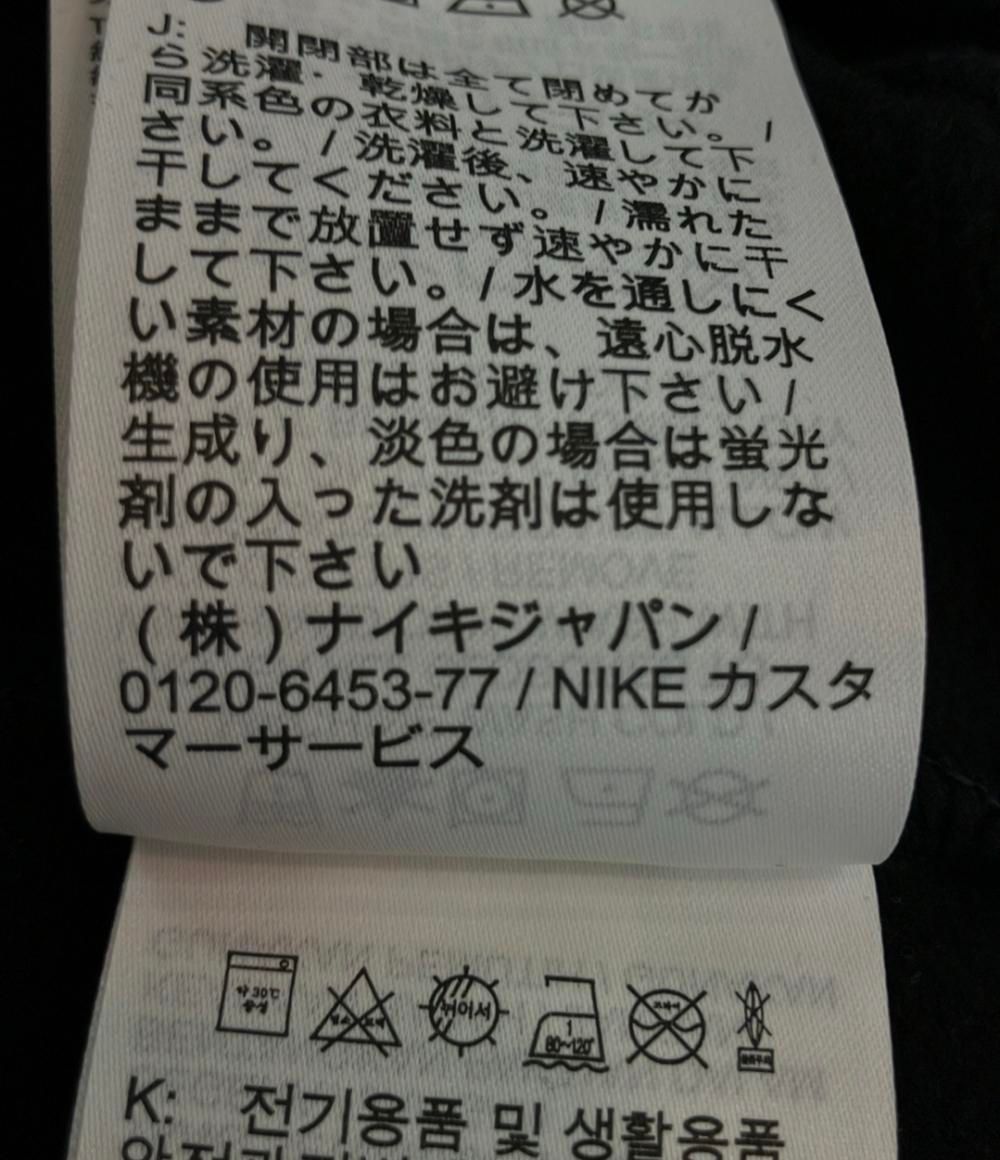 J: 開閉部は全て閉めてか
ら洗濯・乾燥して下さい。/
同系色の衣料と洗濯して下
さい。/洗濯後、速やかに
干してください。/濡れた
ままで放置せず速やかに干
して下さい。/水を通しにく
い素材の場合は、遠心脱水
機の使用はお避け下さい/
生成り、淡色の場合は蛍光
剤の入った洗剤は使用しな
いで下さい
(株)ナイキジャパン/
0120-6453-77 / NIKE カスタ
マーサービス
약 30℃
중성
뉘어서
1
80~120°
K: 전기용품 및 생활용품